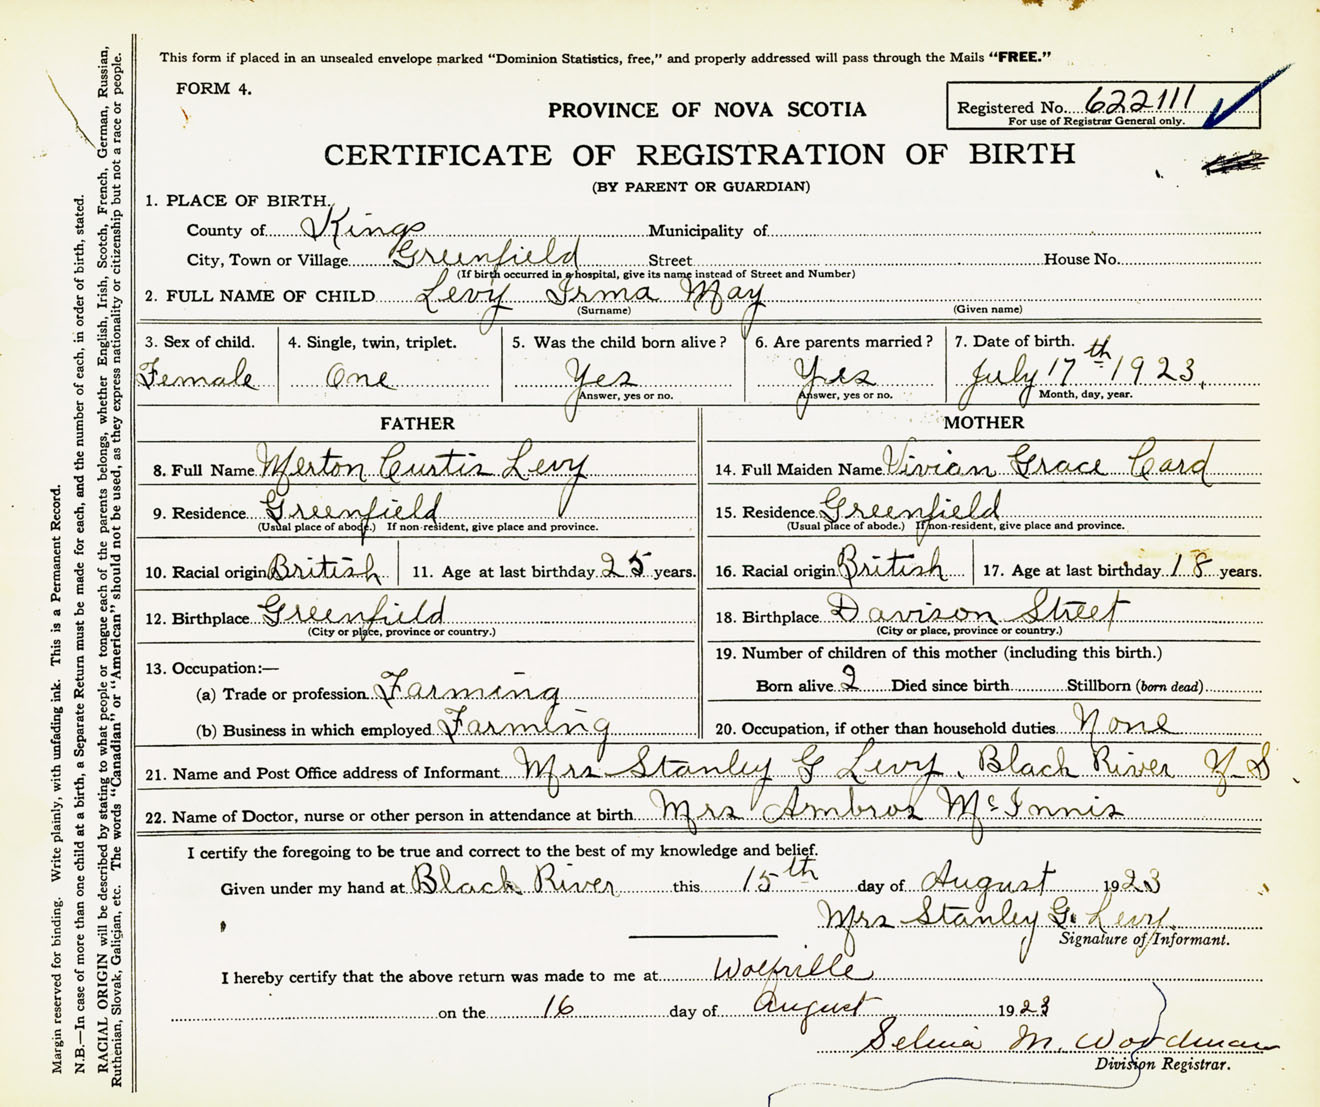 This form if placed in an unsealed envelope marked "Dominion Statistics, free," and properly addressed will pass through the Mails "FREE."
FORM 4.
Registered No. 622111
For use of Registrar General only.
PROVINCE OF NOVA SCOTIA
CERTIFICATE OF REGISTRATION OF BIRTH
(BY PARENT OR GUARDIAN)
1. PLACE OF BIRTH.
County of Kings Municipality of
City, Town or Village Greenfield Street House No.
(If birth occurred in a hospital, give its name instead of Street and Number)
2. FULL NAME OF CHILD Levy Irma May
(Surname) (Given name)
3. Sex of child. 4. Single, twin, triplet. 5. Was the child born alive? 6. Are parents married? 7. Date of birth.
Female One Yes Yes July 17th 1923.
Answer, yes or no. Answer, yes or no. Month, day, year.
FATHER MOTHER
8. Full Name Merton Curtis Levy 14. Full Maiden Name Vivian Grace Card
9. Residence Greenfield 15. Residence Greenfield
(Usual place of abode.) If non-resident, give place and province. (Usual place of abode.) If non-resident, give place and province.
10. Racial origin British 11. Age at last birthday 25 years. 16. Racial origin British 17. Age at last birthday 18 years.
12. Birthplace Greenfield 18. Birthplace Davison Street
(City or place, province or country.) (City or place, province or country.)
13. Occupation:— 19. Number of children of this mother (including this birth.)
(a) Trade or profession Farming Born alive 2 Died since birth Stillborn (born dead)
(b) Business in which employed Farming 20. Occupation, if other than household duties None
21. Name and Post Office address of Informant Mrs Stanley G Levy, Black River N-S
22. Name of Doctor, nurse or other person in attendance at birth Mrs Ambros McInnis
I certify the foregoing to be true and correct to the best of my knowledge and belief.
Given under my hand at Black River this 15th day of August 1923
Mrs Stanley G. Levy
Signature of Informant.
I hereby certify that the above return was made to me at Wolfville
on the 16 day of August 1923
Selmia M. Woodman
Division Registrar.
Margin reserved for binding. Write plainly, with unfading ink. This is a Permanent Record.
N.B.—In case of more than one child at a birth, a Separate Return must be made for each, and the number of each, in order of birth, stated.
RACIAL ORIGIN will be described by stating to what people or tongue each of the parents belongs, whether English, Irish, Scotch, French, German, Russian,
Ruthenian, Slovak, Galician, etc. The words "Canadian" or "American" should not be used, as they express nationality or citizenship but not a race or people.